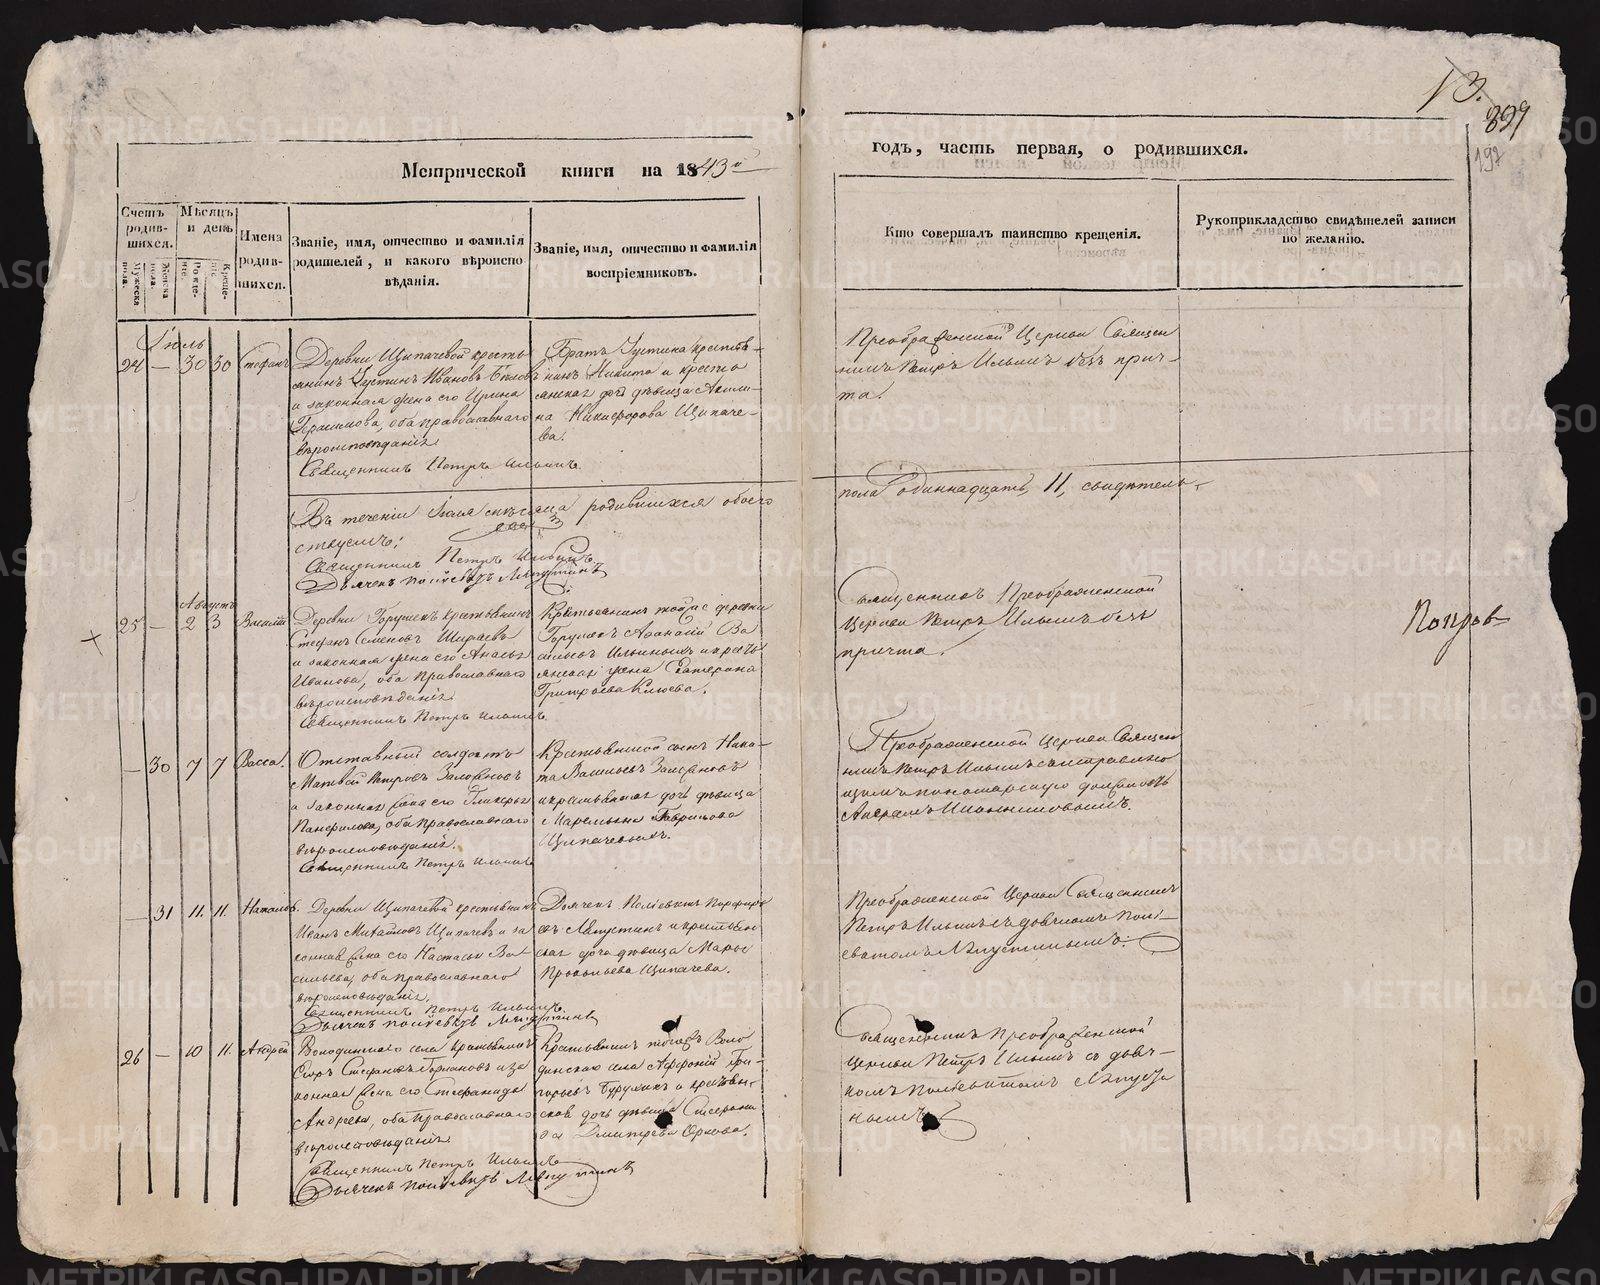 13.
899
197
Метрической книги на 1843й
годъ, часть первая, о родившихся.
Счетъ родившихся.
Мужеска пола.
Женска пола.
Мѣсяцъ и день
Рожденіе.
Крещеніе.
Имена родившихся.
Званіе, имя, отчество и фамилія
родителей, и какого вѣроиспо
вѣданія.
Званіе, имя, отчество и фамилія
воспріемниковъ.
Кто совершалъ таинство крещенія.
Рукоприкладство свидѣтелей записи
по желанію.
Іюль
24 — 30 30 Стефанъ
Деревни Щипачевой кресть
янинъ Іустинъ Ивановъ
и законная жена его Ирина
Герасимова, оба православнаго
вѣроисповѣданія.
Священникъ Петръ Ильинъ
Братъ Іустина крестья-
нинъ Никита и кресть
янская дочь дѣвица Акили-
на Никифорова Щипаче-
ва.
Преображенской Церкви Священ
никъ Петръ Ильинъ безъ прич-
та.
Въ теченіи Іюля мѣсяца родившихся обоего
пола одиннадцать, 11, свидѣтель-
ствуемъ:
Священникъ Петръ Ильинъ
Дьячекъ Поліевктъ Лапустинъ
Августъ
25 — 2 3 Василій
Деревни Горушекъ крестьянинъ
Стефанъ Семеновъ
и законная жена его
Иванова, оба православнаго
вѣроисповѣданія
Священникъ Петръ Ильинъ.
Крестьянинъ той же деревни
Горушекъ Афанасій Ва
сильевъ Ильиныхъ и кресть
янская жена Катерина
Григорьева Клюева.
Священникъ Преображенской
Церкви Петръ Ильинъ безъ
причта.
— 30 7 7 Васса.
Отставный солдатъ
Матвей Петровъ
и законная жена его Гликерья
Панфилова, оба православнаго
вѣроисповѣданія.
Священникъ Петръ Ильинъ
Крестьянской сынъ Ники-
та Васильевъ
и крестьянская дочь дѣвица
Маремьяна Гаврилова
Щипачевыхъ.
Преображенской Церкви Священ
никъ Петръ Ильинъ съ исправляю
щимъ пономарскую должность
— 31 11. 11. Наталія.
Деревни Щипачевой крестьянинъ
Иванъ Михайловъ Щипачевъ и за
конная жена его Настасья Ва-
сильева, оба православнаго
вѣроисповѣданія.
Священникъ Петръ Ильинъ.
Дьячекъ Поліевктъ Лапустинъ
Дьячекъ Поліевктъ Порфирье
въ Лапустинъ и крестьян
ская дочь дѣвица Марья
Прокопьева Щипачева.
Преображенской Церкви Священникъ
Петръ Ильинъ съ дьячкомъ Полі-
евктомъ Лапустинымъ.
26 — 10 11. Андрей
Володинскаго села крестьянинъ
Егоръ Стефановъ и за
конная жена его Стефанида
Андреева, оба православнаго
вѣроисповѣданія.
Священникъ Петръ Ильинъ
Дьячекъ Поліевктъ Лапустинъ
Крестьянинъ того жъ Воло
динскаго села Афанасій Гри-
горьевъ и крестьян-
ская дочь дѣвица
Дмитрева Орлова.
Священникъ Преображенской
Церкви Петръ Ильинъ съ дьяч-
комъ Поліевктомъ Лапусти
нымъ